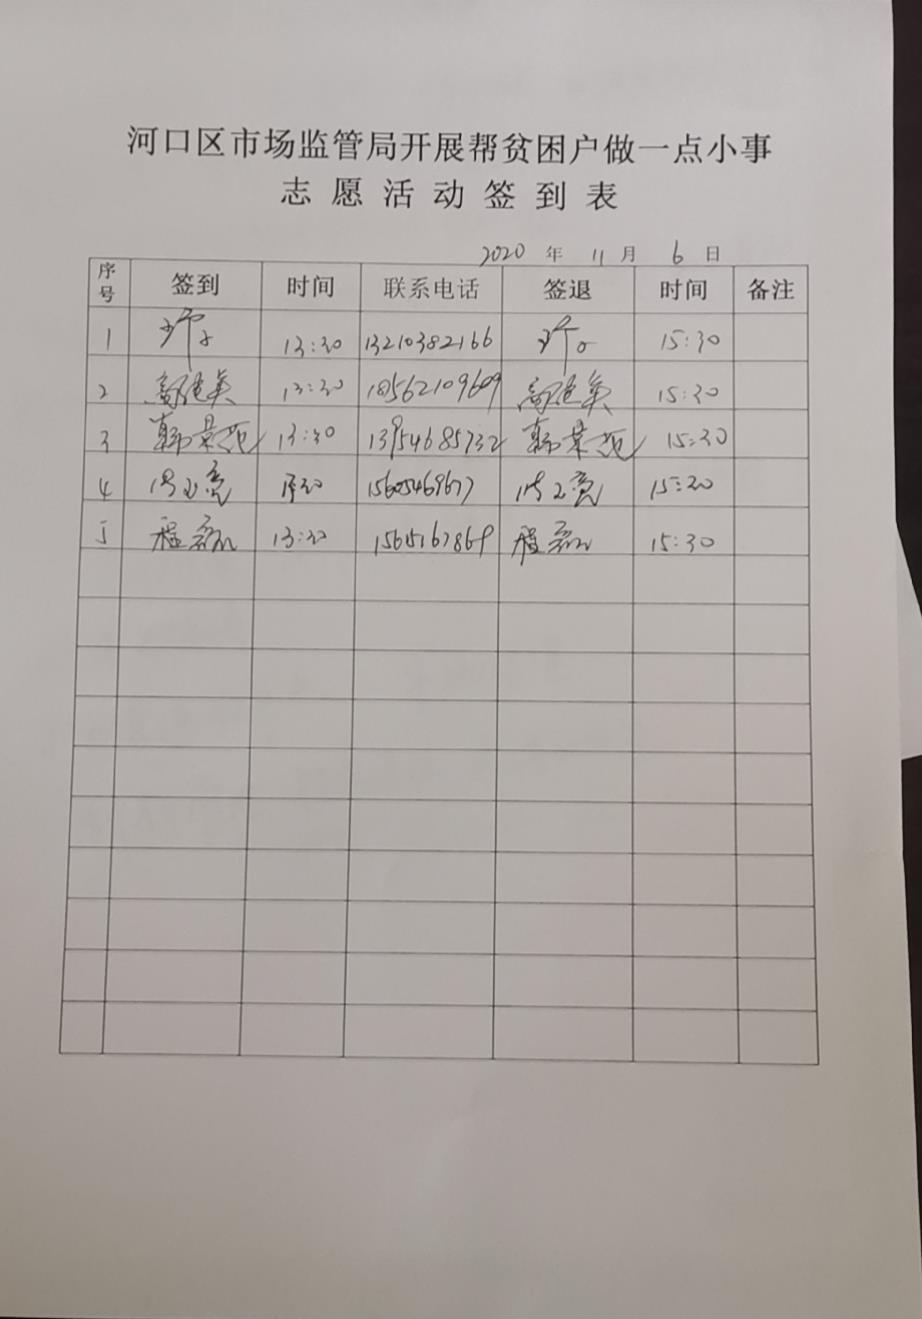 河口区市场监管局开展帮贫困户做一点小事
志愿活动签到表
2020 年 11 月 6 日
序号 签到 时间 联系电话 签退 时间 备注
1 13:30 13210382166 15:30
2 高建英 13:30 18562109609 高建英 15:30
3 韩荣范 13:30 13954685732 韩荣范 15:30
4 15605469677 15:30
5 程 13:30 程 15:30